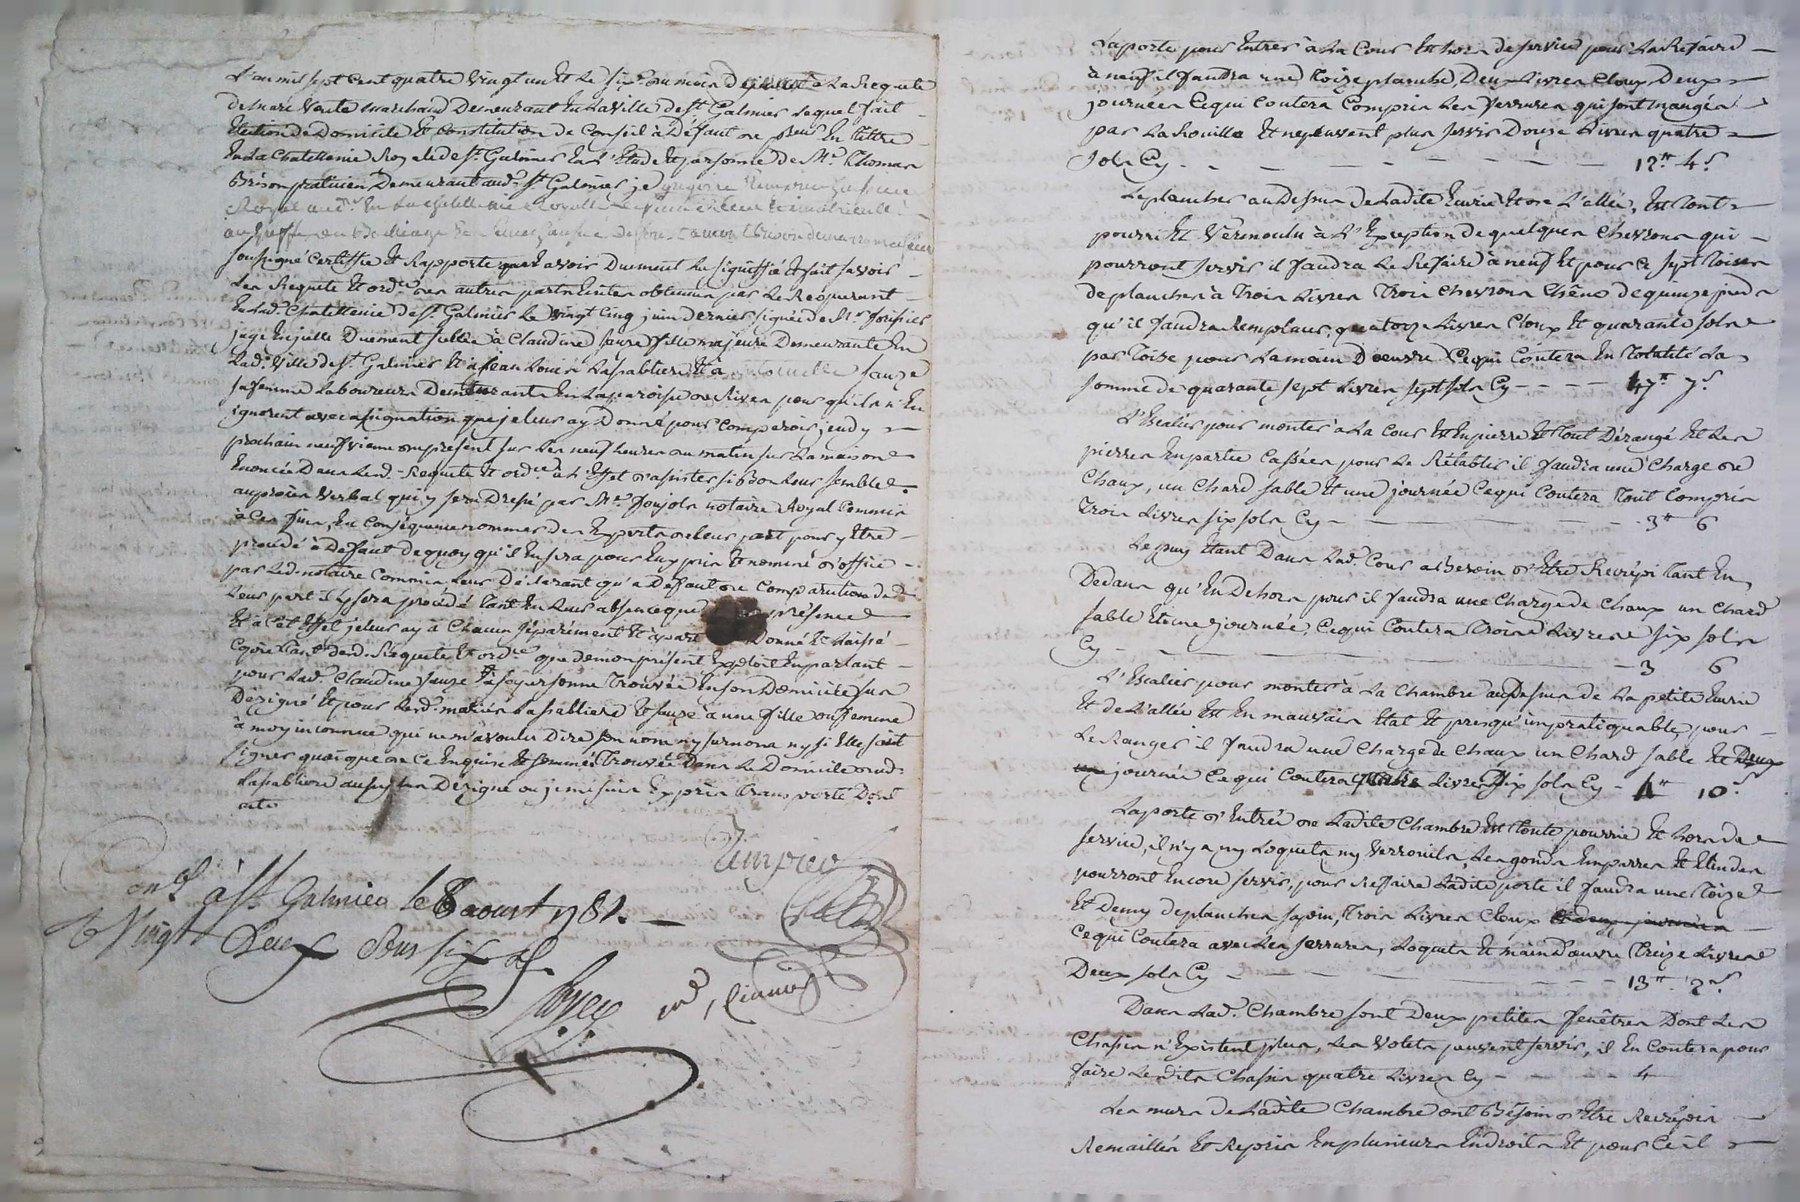 L'an mil sept cent quatre vingt un Et Le six du mois d'aoust à La Requete
de marc Vente marchand Demeurant En La Ville de St Galmier Lequel fait
Election de Domicile Et Constitution de Conseil à Défaut de Pcur En tittre
En La Chatellenie Royale de St Galmier En L'Etude Et personne de Me Thomas
Brison praticien Demeurant aud. St Galmier je
Royal
soussigné Certiffie Et Rapporte avoir Duement Signiffié Et fait savoir
Les Requete Et ordce des autres parts Ecrites obtenues par Le Requerant
En Lad. Chatellenie de St Galmier Le Vingt Cinq juin Dernier signée de Mr
juge En icelle Duement scellée à Claudine sauze fille majeure Demeurante En
Lad. Ville de St Galmier Et à Jean Louis Lasabliere Et à sauze
sa femme Laboureurs Demeurants En La paroisse de Rivas pour qu'ils n'En
ignorent avec assignation que je leur ay Donné pour Comparoir jeudy
prochain neufvieme du présent sur Les neuf heures du matin sur La maison
Enoncée Dans Lesd. Requete Et ordce à L'Effet d'assister si Bon Leur semble
au procès Verbal qui y sera Dressé par Me Poujols notaire Royal Commis
à Ces fins, En Conséquence nommer des Experts de leur part pour y Etre
procédé à Défaut de quoy qu'il En sera pour Eux pris Et nommé d'office
par Led. notaire Commis Leur Déclarant qu'à Défaut de Comparution de
Leur part il y sera procédé tant En Leur absence que présence
Et à Cet Effet je leur ay à Chacun séparément Et à part Donné Et Laissé
Copie tant desd. Requete Et ordce que de mon présent Exploit En parlant
pour Lad. Claudine sauze à sa personne trouvée En son Domicile sus
Désigné Et pour Lesd. mariés Lasabliere Et sauze à une fille ou femme
à moy inconnue qui ne m'a voulu Dire son nom ny surnom ny si Elle sait
signer quoique de Ce Enquise Et sommée trouvée Dans Le Domicile dud.
Lasabliere aussy sus Désigné ou je me suis Exprès transporté Dont
acte
Conlé à St Galmier le 8 aoust 1781.
R Vingt Deux sous six d.
Laporte pour Entrer à La Cour Est hors de service pour La Refaire
à neuf il faudra une toize planche, Deux Livres Cloux Deux
journées Ce qui Coutera Compris Les ferrures qui sont mangées
par La Rouille Et ne peuvent plus servir Douze Livres quatre
sols Cy - - - - - - 12tt 4s
Le plancher au Dessus de Ladite Ecurie Et de L'allée, Est tout
pourri Et Vermoulu à L'Exception de quelques Chevrons qui
pourront servir il faudra Le Refaire à neuf Et pour Ce sept toises
de plancher à trois Livres trois Chevrons Chêne de quinze pieds
qu'il faudra Remplacer, quatorze Livres Cloux Et quarante sols
par toise pour La main D'oeuvre Ce qui Coutera En totalité La
somme de quarante sept Livres sept sols Cy - - - - 47tt 7s
L'Escalier pour monter à La Cour Est En pierre Et tout Dérangé Et Les
pierres En partie Cassées pour Le Rétablir il faudra une Charge de
Chaux, un Chard sable Et une journée Ce qui Coutera tout Compris
trois Livres six sols Cy - - - - - 3tt 6
Le puy Etant Dans Lad. Cour a Besoin d'Etre Recrépi tant En
Dedans qu'En Dehors pour il faudra une Charge de Chaux un Chard
sable Et une journée, Ce qui Coutera trois Livres six sols
Cy - - - - - 3 6
L'Escalier pour monter à La Chambre au Dessus de La petite Ecurie
Et de L'allée Est En mauvais Etat Et presqu'impratiquable, pour
Le Ranger il faudra une Charge de Chaux un Chard sable Et Deux
journée Ce qui Coutera quatre Livres Dix sols Cy - 4tt 10s
Laporte d'Entrée de Ladite Chambre Est toute pourrie Et hors de
service, il n'y a ny Loquets ny Verrouils, Les gonds Emparres Et Etindes
pourront Encore servir, pour Reffaire Ladite porte il faudra une toize
Et demy de planches sapin, trois Livres Cloux Et deux journées
Ce qui Coutera avec Les serrures, Loquets Et main D'oeuvre treize Livres
Deux sols Cy - - - - - 13tt. 2s.
Dans Lad. Chambre sont Deux petites fenêtres Dont Les
Chassis n'Existent plus, Les Volets peuvent servir, il En Coutera pour
faire Lesdits Chassis quatre Livres Cy - - - - - 4
Les murs de Ladite Chambre ont Besoin d'Etre Recrépis
Remaillés Et Repris En plusieurs Endroits Et pour Ce il